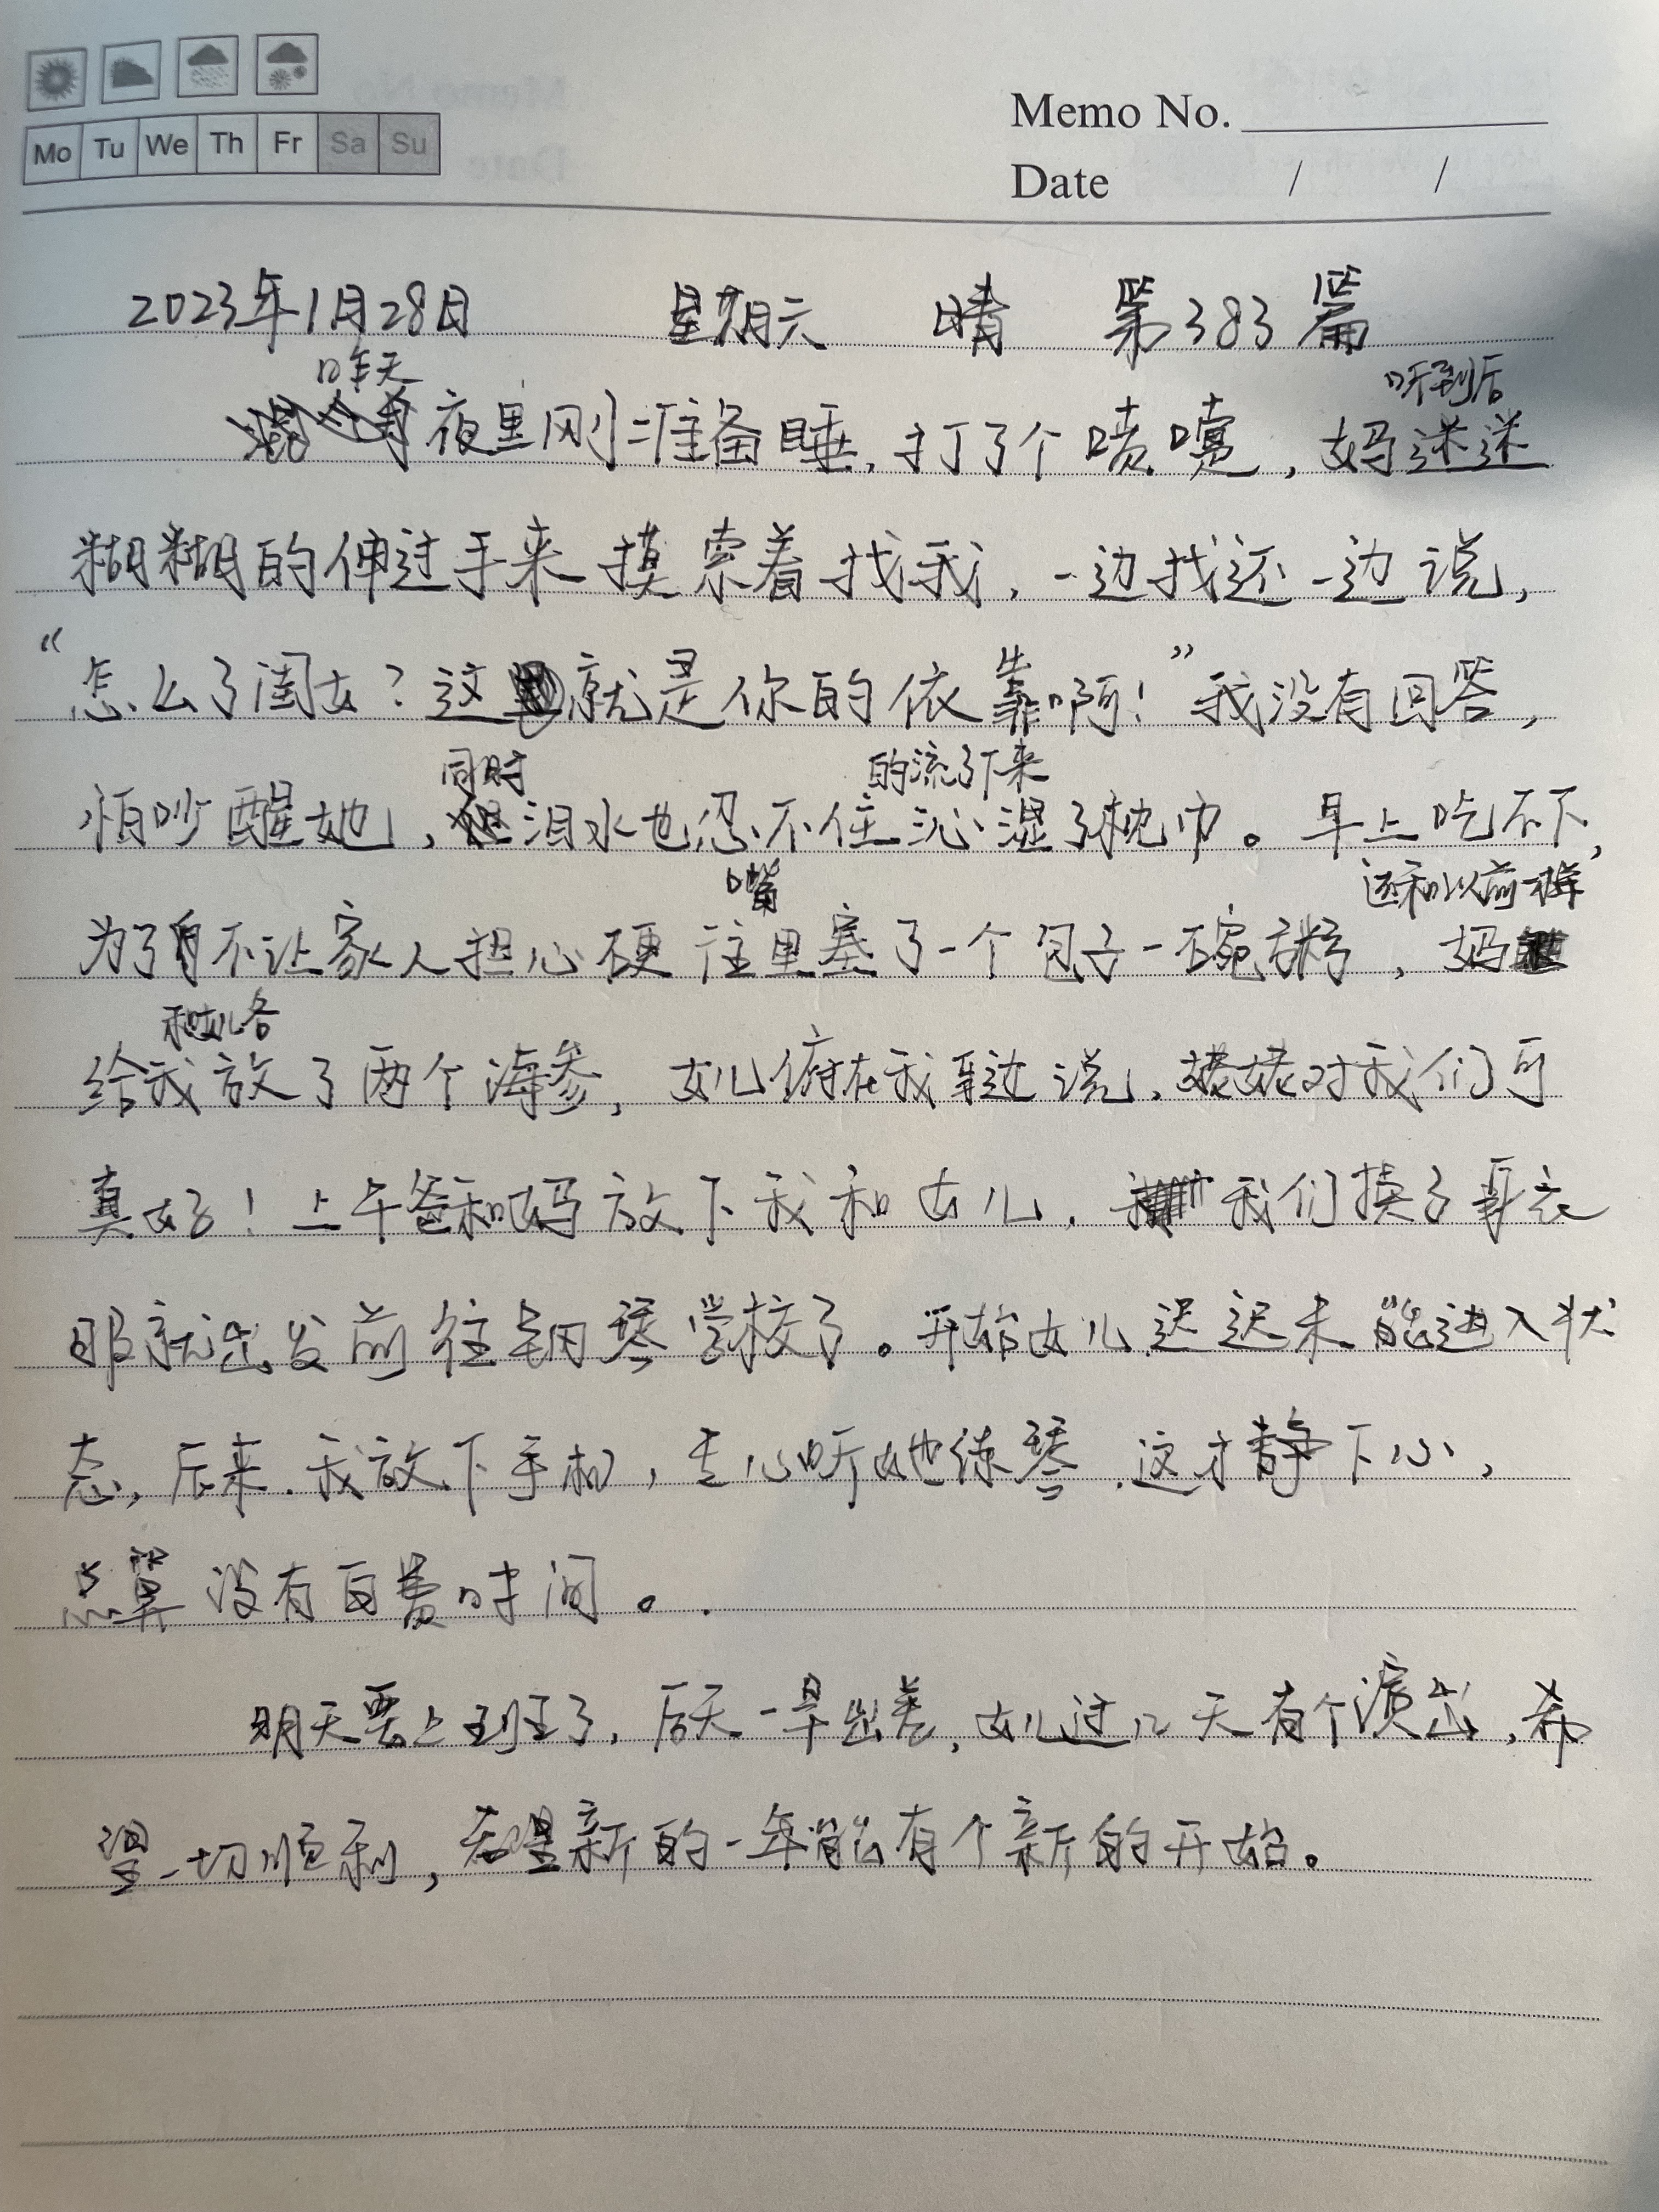 Mo Tu We Th Fr Sa Su
Memo No.
Date / /
2023年1月28日 星期六 晴 第383篇
昨天 听到后
夜里刚准备睡,打了个喷嚏,妈迷迷
糊糊的伸过手来摸索着找我,一边找还一边说,
“怎么了闺女?这就是你的依靠啊!”我没有回答,
同时 的流了下来
怕吵醒她,泪水也忍不住沁湿了枕巾。早上吃不下,
嘴 还和以前一样
为了不让家人担心硬往里塞了一个包子一碗粥,妈
和女儿各
给我放了两个海参,女儿俯在我耳边说,姥姥对我们可
真好!上午爸和妈放下我和女儿,我们换了身衣
服就出发前往钢琴学校了。开始女儿迟迟未能进入状
态,后来,我放下手机,专心听她练琴,这才静下心,
总算没有白费时间。
明天要上班了,后天一早出差,女儿过几天有个演出,希
望一切顺利,希望新的一年能有个新的开始。